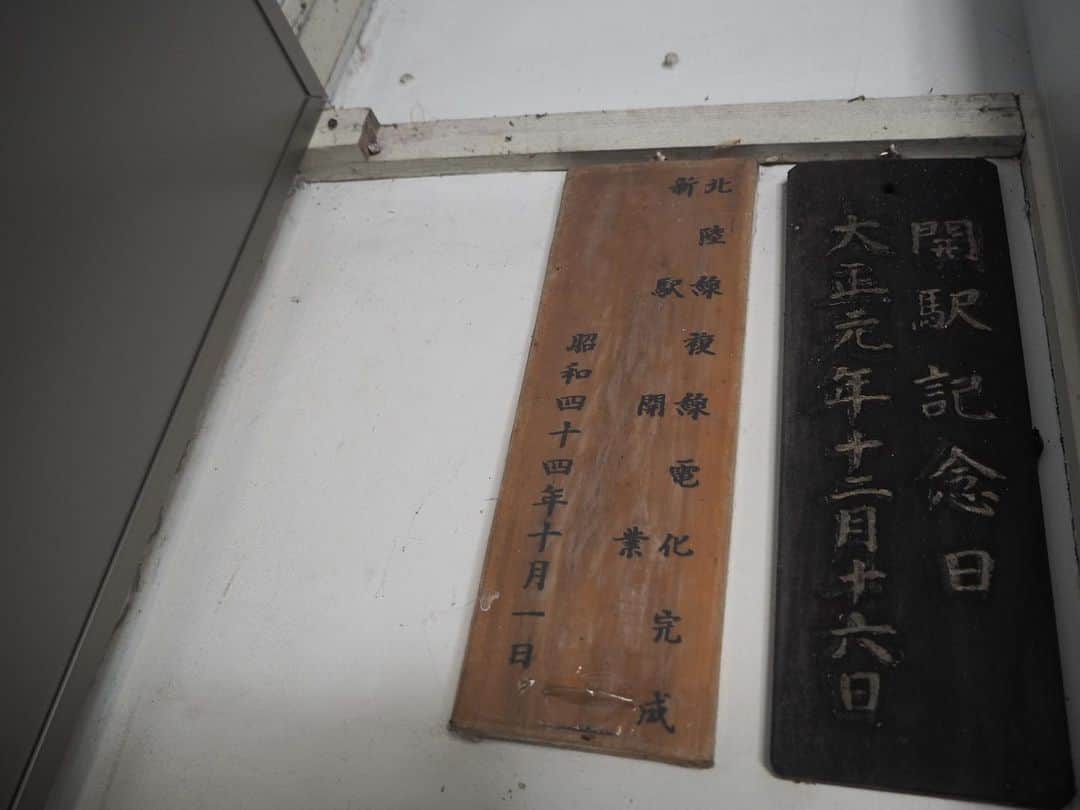 開駅記念日
大正元年十二月十六日
北陸線複線電化完成
新駅開業
昭和四十四年十月一日